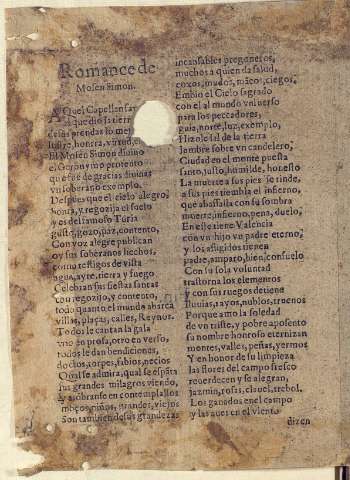 Romance de
Mosen Simon.
AQuel Capellan
aquedio la tierra
de las prendas lo
lustre, honra, virtud,
El Mosen Simon diuino
que fue de gracias diuinas
vn soberano exemplo.
Despues que el cielo alegro,
honra, y regozija el suelo
y es del famoso Turia
gusto, gozo, paz, contento,
Con voz alegre publican
oy sus soberanos hechos,
como testigos de vista
agua, ayre, tierra y fuego
Celebran sus fiestas santas
con regozijo, y contento,
todo quanto el mundo abarca
villas, plaças, calles, Reynos.
Todos le cantan la gala
vno en prosa, otro en verso,
todos le dan bendiciones,
doctos, torpes, sabios, necios
Qual se admira, qual se espãta
sus grandes milagros viendo,
y assombranse en contemplallos
mãços, niños, grandes, viejos
Son tambien de sus grandezas
incansables pregoneros,
muchos a quien da salud,
coxos, mudos, mãcos, ciegos,
Embio el Cielo sagrado
con el al mundo vniuerso
para los peccadores,
guia, norte, luz, exemplo,
Hizole sal de la tierra
lumbre sobre vn candelero,
Ciudad en el monte puesta
santo, justo, humilde, honesto
La muerte a sus pies se rinde,
a sus pies tiembla el infierno,
que abassalla con su sombra
muerte, infierno, pena, duelo,
En este tiene Valencia
con vn hijo vn padre eterno,
y los afligidos tienen
padre, amparo, bien, consuelo
Con su sola voluntad
trastorna los elementos
y con sus ruegos detiene
lluuias, rayos, nublos, truenos
Porque amo la soledad
de vn triste, y pobre aposento
su nombre honroso eternizan
montes, valles, peñas, yermos
Y en honor de su limpieza
las flores del campo fresco
reuerdecen y se alegran,
jazmin, rosas, clauel, trebol,
Los ganados en el campo
y las aues en el viento
dizen